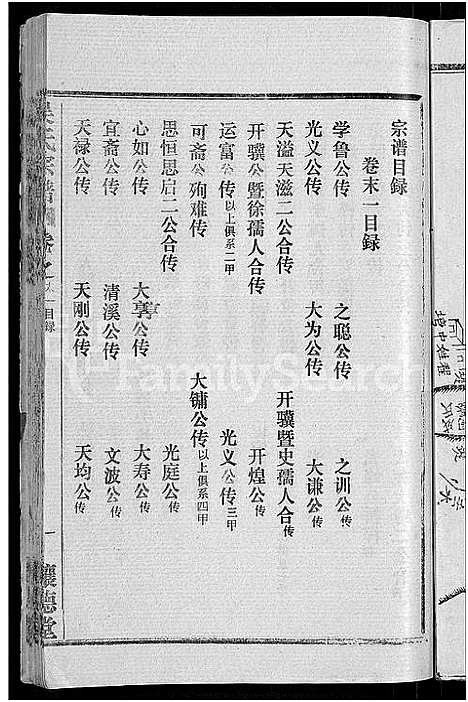 宗谱目录
卷末一目录
学鲁公传 之聪公传 之训公传
光义公传 大为公传 大谦公传
天溢天滋二公合传 开骥暨史孺人合传
开骥公暨徐孺人合传 开煌公传
运富公传以上俱系二甲 光义公传三甲
可斋公殉难传 大镛公传以上俱系四甲
思恒思启二公合传 光庭公传
心如公传 大享公传 大寿公传
宜斋公传 清溪公传 文波公传
天禄公传 天刚公传 天均公传
氏宗谱 卷之末一目录 一 让德堂
FamilySearch